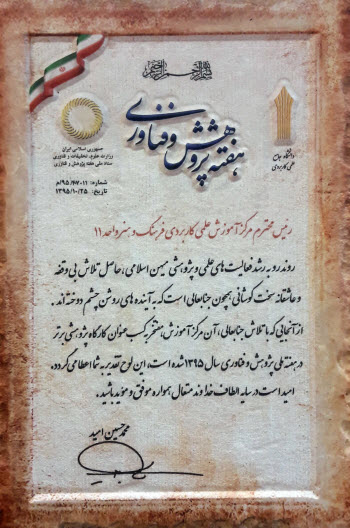 بسم الله الرحمن الرحیم
هفته پژوهش و فناوری
جمهوری اسلامی ایران
وزارت علوم، تحقیقات و فناوری
ستاد ملی هفته پژوهش و فناوری
دانشگاه جامع
علمی کاربردی
شماره: ۹۵/۴۷۰۱۱/م
تاریخ: ۱۳۹۵/۱۰/۲۵
رئیس محترم مرکز آموزش علمی کاربردی فرهنگ و هنر واحد ۱۱
روند رو به رشد فعالیت های علمی و پژوهشی میهن اسلامی، حاصل تلاش بی وقفه
و عاشقانه سخت کوشانی همچون جنابعالی است که به آینده های روشن چشم دوخته اند.
از آنجایی که با تلاش جنابعالی، آن مرکز آموزش، مفتخر به کسب عنوان کارگاه پژوهشی برتر
در هفته ملی پژوهش و فناوری سال ۱۳۹۵ شده است، این لوح تقدیر به شما اعطا می گردد.
امید است در سایه الطاف خداوند متعال همواره موفق و مؤید باشید.
محمد حسین امید